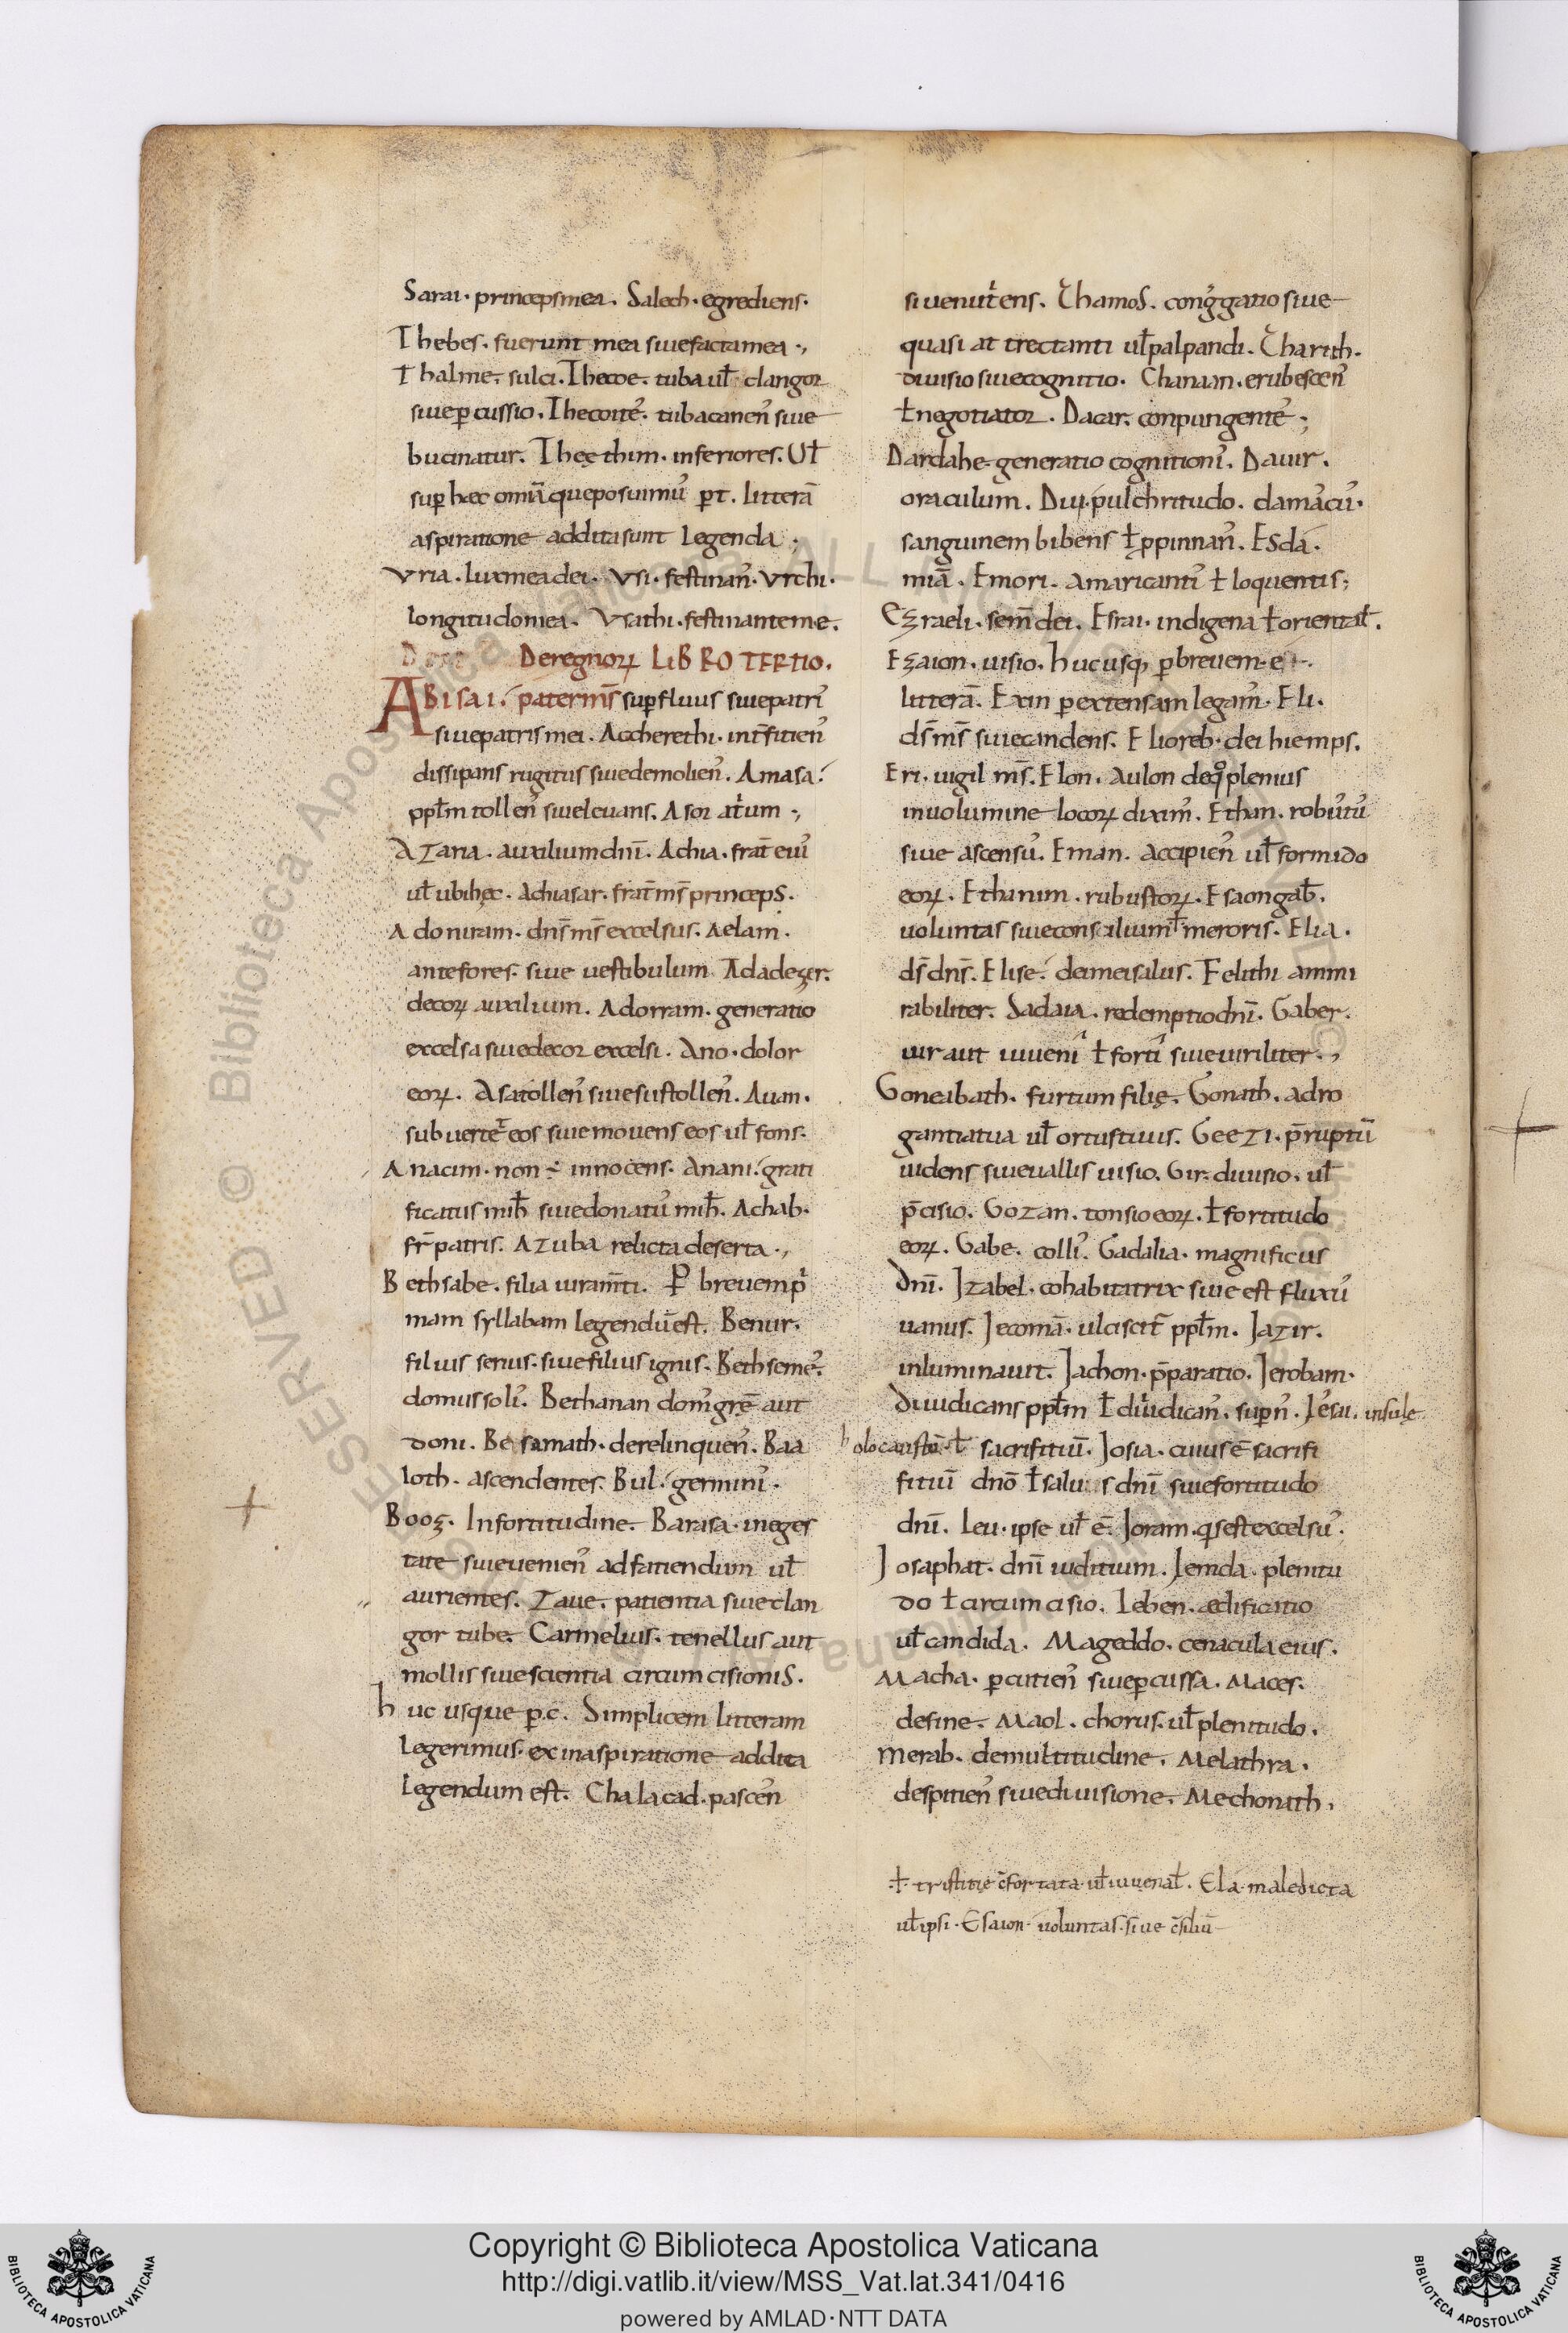 Sarai· princeps mea. Salech· egrediens·
Thebes· fuerunt mea siue facta mea ·,
Thalme· sulci. Thecoe· tuba ul̄ clangor
siue ꝑcussio. Thecoite᾿· tuba canen᾿ siue
bucinatur. Theęthim· inferiores. Ul̄
suꝑ hęc omīa que posuimu᾿ ꝑ t. litterā
aspiratione addita sunt legenda ;
Vria· lux mea dei· Vsi· festinan᾿· Vrchi·
longitudo mea. Vsathi· festinante me.
De regnoꝝ LIBRO TERTIO.
ABisai· pater mȓs suꝑfluus siue patri᾿
siue patris mei. Accherethi· int̄fitien᾿
dissipans rugitus siue demolien᾿. Amasa·
pplm̄ tollen᾿ siue leuans. Asor at'um ·,
Azaria· auxilium dnī. Achia· frat̄ eiu᾿
ul̄ ubi hęc. Achiasar· frat̄ ms̄ princeps.
Adoniram· dns̄ ms̄ excelsus. Aelam·
ante fores· siue uestibulum. Adadeʒer·
decoꝝ auxilium. Adorram· generatio
excelsa siue decor excelsi. Ano· dolor
eoꝝ. Asa tollen᾿ siue sustollen᾿. Auan·
subuerte᾿ eos siue mouens eos ul̄ fons.
Anacim· non ÷ innocens. Anani· grati
ficatus mih̄ siue donatu᾿ mih̄. Achab·
fr̄ patris. Azuba relicta deserta ·,
Bethsabe· filia iuram̄ti. Ꝑ breuem p'
mam syllabam legendū est. Benur·
filius serius· siue filius ignis. Bethseme᾿·
domus soli᾿. Bethanan dom᾿ grę̄ aut
doni. Besamath· derelinquen᾿. Baa
loth· ascendentes. Bul· germini᾿·
Booʒ· In fortitudine. Barasa· in eges
tate siue uenien᾿ ad fatiendum ul̄
aurientes. Zaue· patientia siue clan
gor tubę. Carmelius· tenellus aut
mollis siue scientia circumcisionis.
huc usque ꝑ.c. Simplicem litteram
legerimus· exin aspiratione addita
legendum est. Chalacad· pascen᾿
siue nut'ens. Chamos. cong᾿gatio siue
quasi attrectanti ul̄ palpandi. Charith·
diuisio siue cognitio. Chanaan· erubescen᾿
ł negotiator. Dacar· conpungente᾿ ;
Dardahe· generatio cognitioni᾿. Dauir·
oraculum. Dui· pulchritudo. damac᾿u᾿·
sanguinem bibens ł ppinnan᾿. Esda·
miā. Emori· amaricanti᾿ ł loquentis;
Eʒraeli· sem̄ dei. Esrai· indigena ł oriental̄.
Eʒaion· uisio. hucusq; ꝑ breuem· e ·
litterā. Exin ꝑ extensam legam᾿. Eli·
ds̄ ms̄ siue candens. Elioreb· dei hiemps.
Eri· uigil ms̄. Elon· aulon de q° plenius
in uolumine locoꝝ dixim᾿. Ethan· robu᾿tu᾿
siue ascensu᾿. Eman· accipien᾿ ul̄ formido
eoꝝ. Ethanim· rubustoꝝ. Esaongab̄.
uoluntas siue consilium ł meroris. Elia·
ds̄ dns̄. Elise· dei mei salus. Felithi ammi
rabiliter. Sadaia· redemptio dnī. Gaber·
uir aut iuueni᾿ ł forti᾿ siue uiriliter ·,
Goneabath· furtum filię. Gonath· adro
gantia tua ul̄ ortus tiuus. Geezi· p̄ruptū
uidens siue uallis uisio. Gir· diuisio· ul̄
p̄cisio. Gozan· tonsio eoꝝ· ł fortitudo
eoꝝ. Gabe· colli᾿. Gadalia· magnificus
dnī. Izabel· cohabitatrix siue est fluxu᾿
uanus. Jecomā· ulciscit̄ pplm̄. Jazir·
inluminauit. Jachon· p̄paratio. Jerobam·
diiudicans pplm̄ ł diu᾿dican᾿· suꝑn᾿. Ie᾿sai· insulę
holocaustū· ł sacrifitiū. Josia· cuius ē sacrifi
fitiū dnō ł salu s dnī siue fortitudo
dnī. Leu· ipse ul̄ ē. Joram· q̄s est excelsu᾿·
Josaphat· dnī iuditium. Iemda· plenitu
do ł circumcisio. Leben· ędificatio
ul̄ candida. Mageddo· cenacula eius.
Macha· ꝑcutien᾿ siue ꝑcussa. Maces·
de fine. Maol· chorus· ul̄ plenitudo.
merab· de multitudine. Melathra·
despitien᾿ siue diuisione. Mechonath·
·ł· tristitię c̄fortata· ul̄ iuuenal̄. Ela· maledicta
ul̄ ipsi· Esaion· uoluntas· siue c̄siliū
Copyright © Biblioteca Apostolica Vaticana
http://digi.vatlib.it/view/MSS_Vat.lat.341/0416
powered by AMLAD·NTT DATA